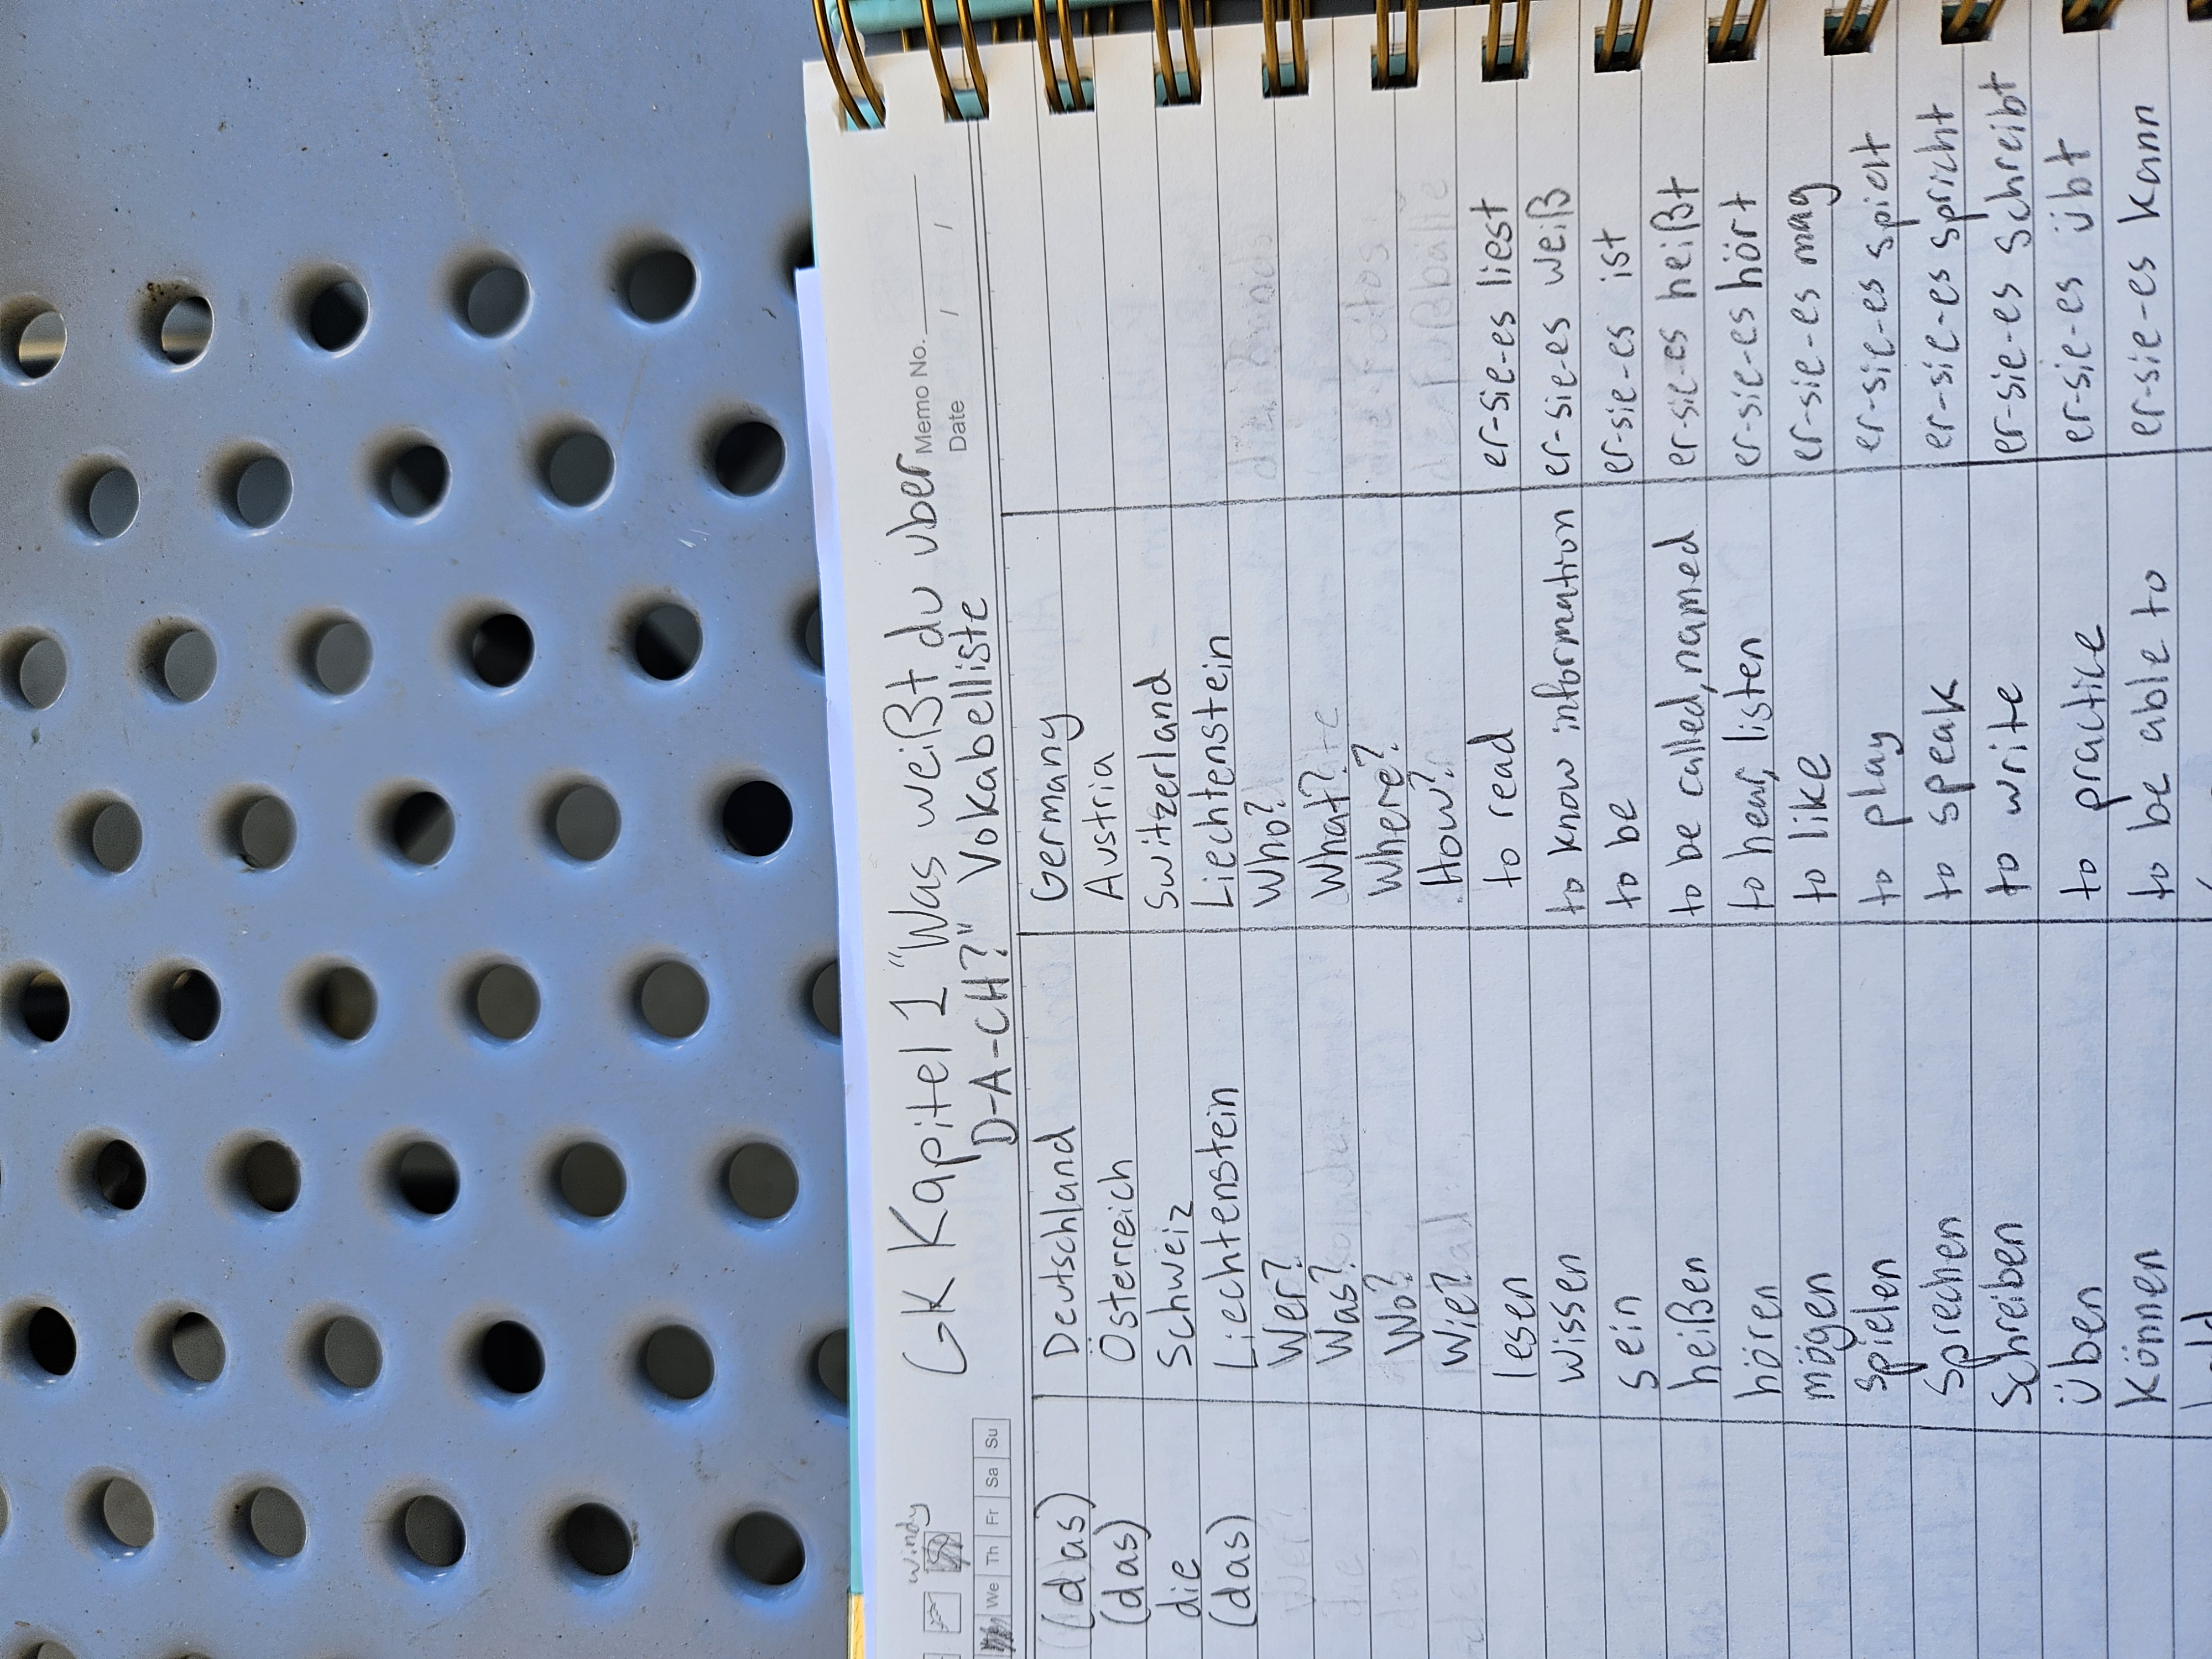 windy
GK Kapitel 1 "Was weißt du uber
D-A-CH?" Vokabelliste
Memo No.
Date / /
We Th Fr Sa Su
(das) Deutschland Germany
(das) Österreich Austria
die Schweiz Switzerland
(das) Liechtenstein Liechtenstein
Wer? Who?
Was? What?
Wo? Where?
Wie? How?
lesen to read er-sie-es liest
wissen to know information er-sie-es weiß
sein to be er-sie-es ist
heißen to be called, named er-sie-es heißt
hören to hear, listen er-sie-es hört
mögen to like er-sie-es mag
spielen to play er-sie-es spielt
Sprechen to speak er-sie-es spricht
Schreiben to write er-sie-es schreibt
üben to practice er-sie-es übt
können to be able to er-sie-es kann